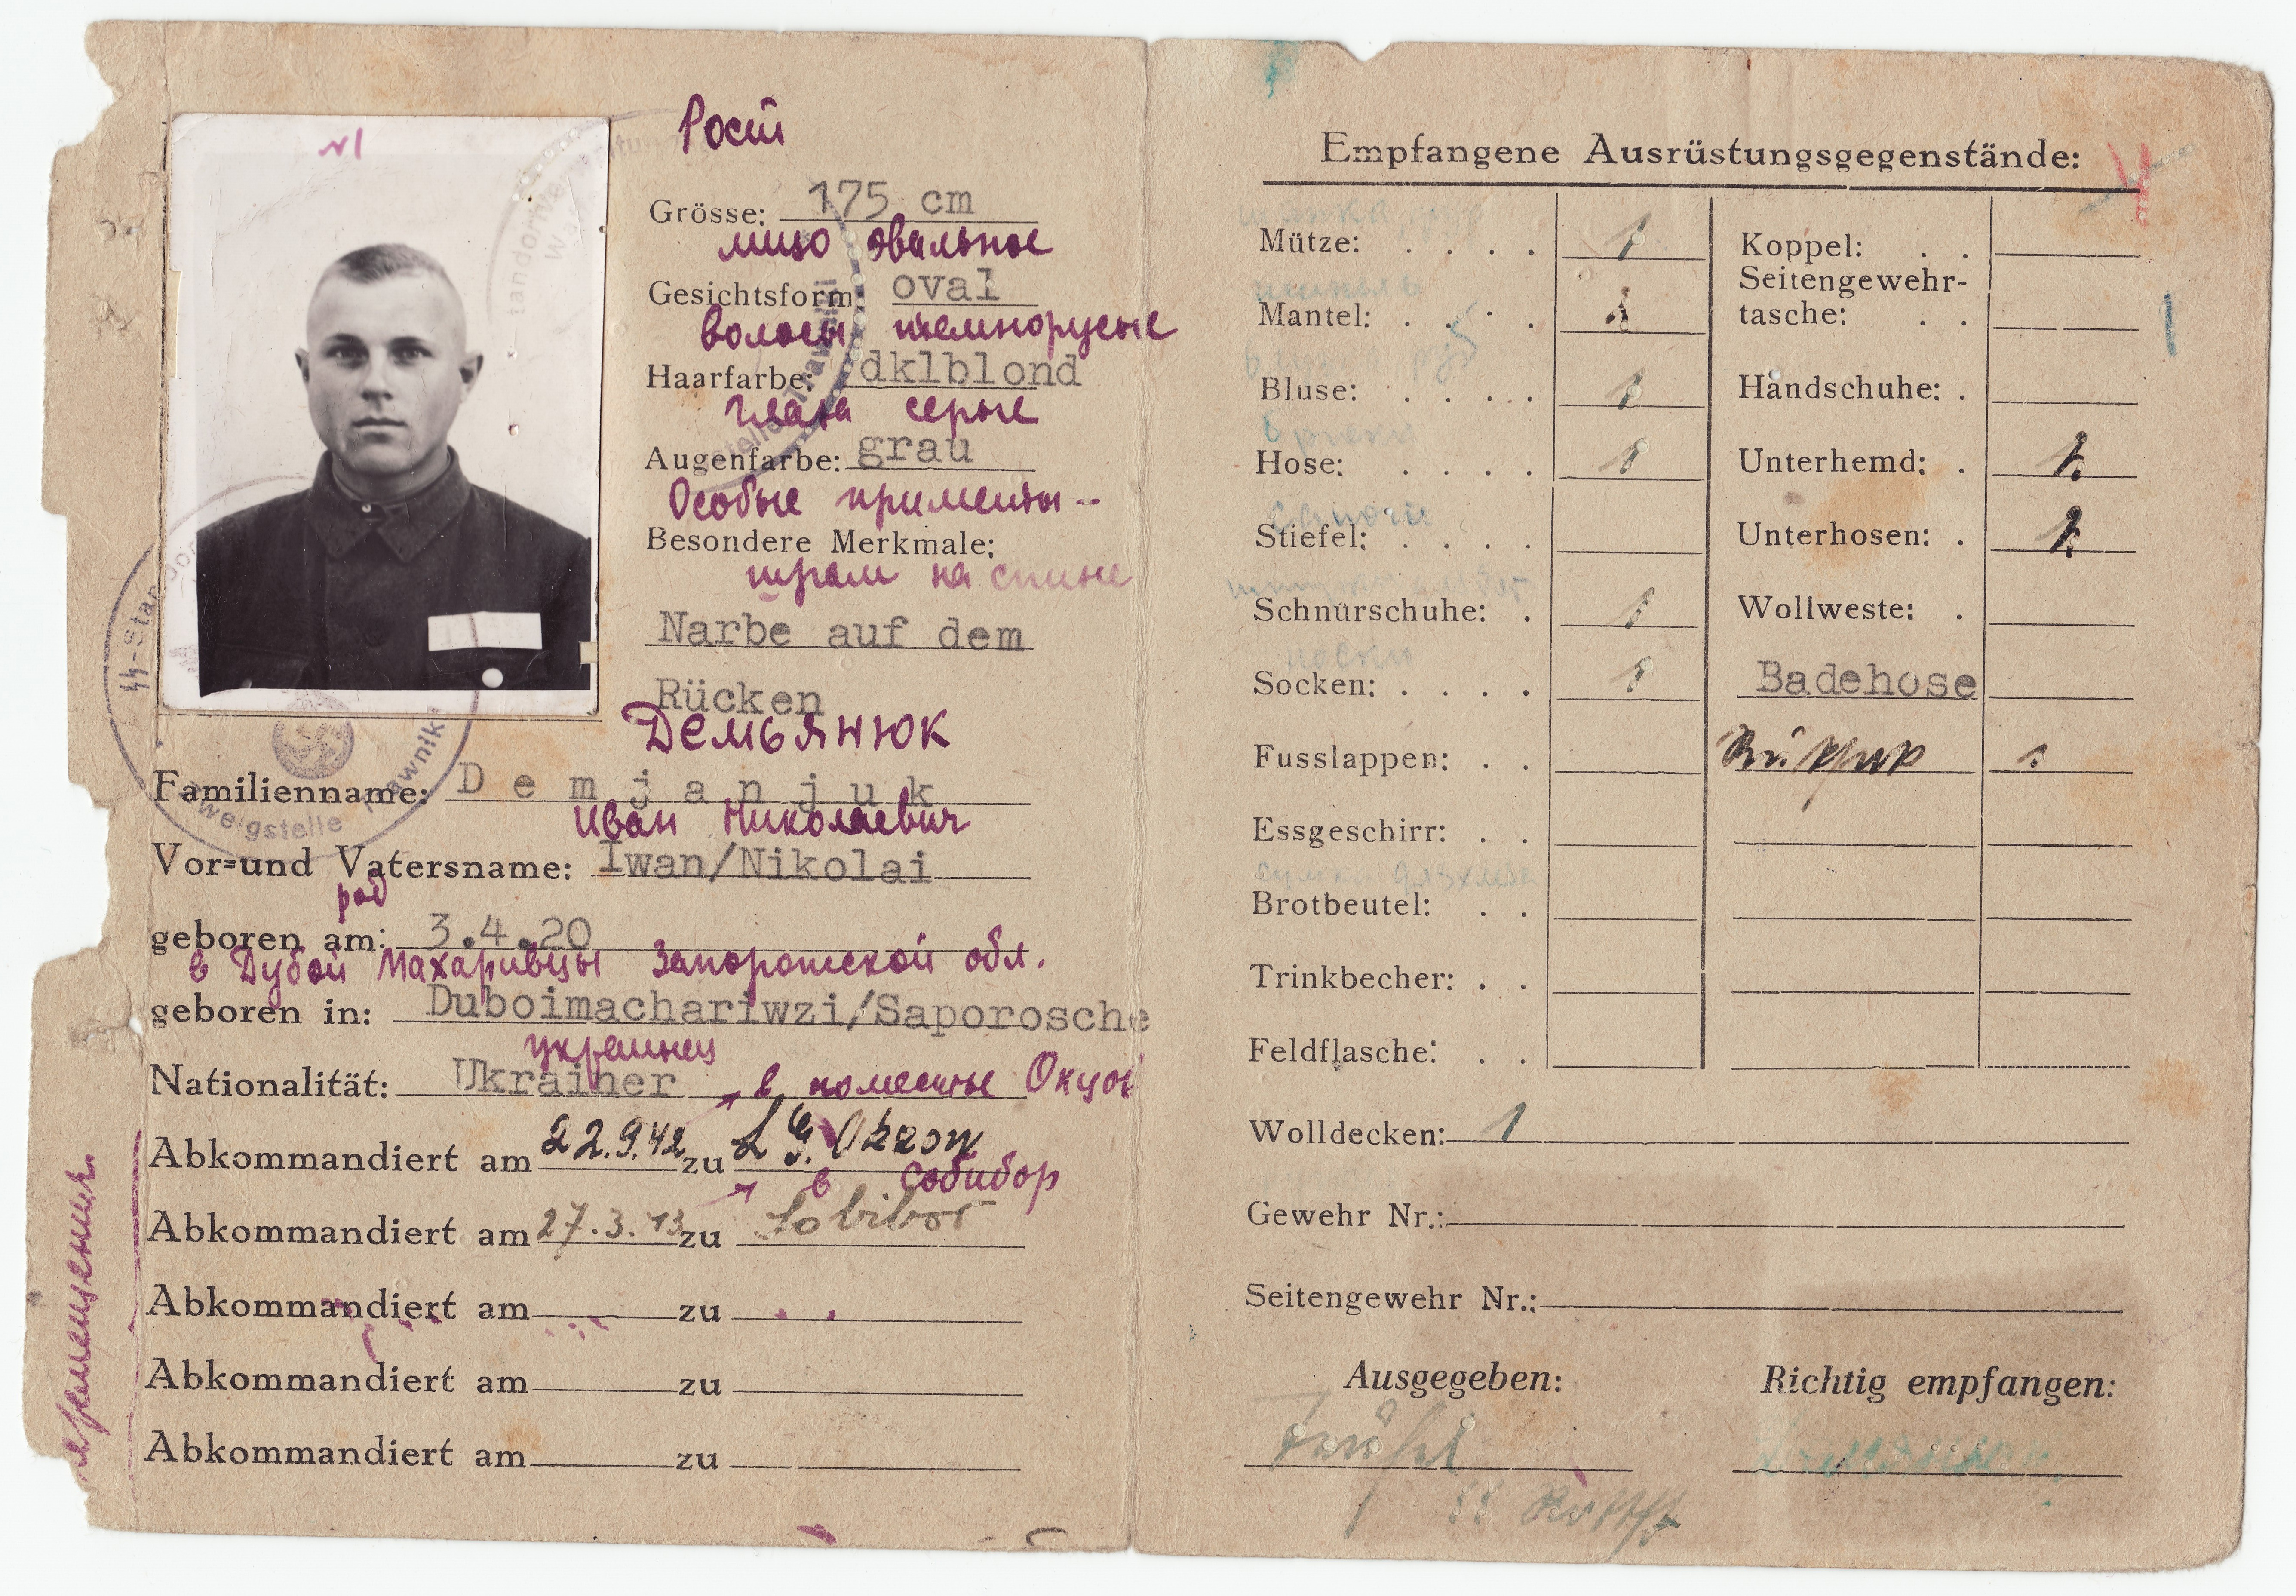 №1
Рост
Grösse: 175 cm
лицо овальное
Gesichtsform: oval
волосы темнорусые
Haarfarbe: dklblond
глаза серые
Augenfarbe: grau
Особые приметы--
Besondere Merkmale:
шрам на спине
Narbe auf dem
Rücken
Демьянюк
Familienname: Demjanjuk
Иван Николаевич
Vor=und Vatersname: Iwan/Nikolai
род
geboren am: 3.4.20
в Дубой Махаривцы Запорожской обл.
geboren in: Duboimachariwzi/Saporosche
украинец
Nationalität: Ukrainer
в поместье Окцов
Abkommandiert am 22.9.42 zu L.G. Okzow
в Собибор
Abkommandiert am 27.3.43 zu Sobibor
Abkommandiert am zu
Abkommandiert am zu
Abkommandiert am zu
SS-Standor
Zweigstelle Trawniki
Empfangene Ausrüstungsgegenstände:
Mütze: . . . . 1
Mantel: . . . . 1
Bluse: . . . . 1
Hose: . . . . 1
Stiefel: . . . .
Schnürschuhe: . 1
Socken: . . . . 1
Fusslappen: . .
Essgeschirr: . .
Brotbeutel: . .
Trinkbecher: . .
Feldflasche: . .
Koppel: . .
Seitengewehr-
tasche: . .
Handschuhe: .
Unterhemd: . 2
Unterhosen: . 2
Wollweste: .
Badehose
1
Wolldecken: 1
Gewehr Nr.:
Seitengewehr Nr.:
Ausgegeben:
Richtig empfangen: